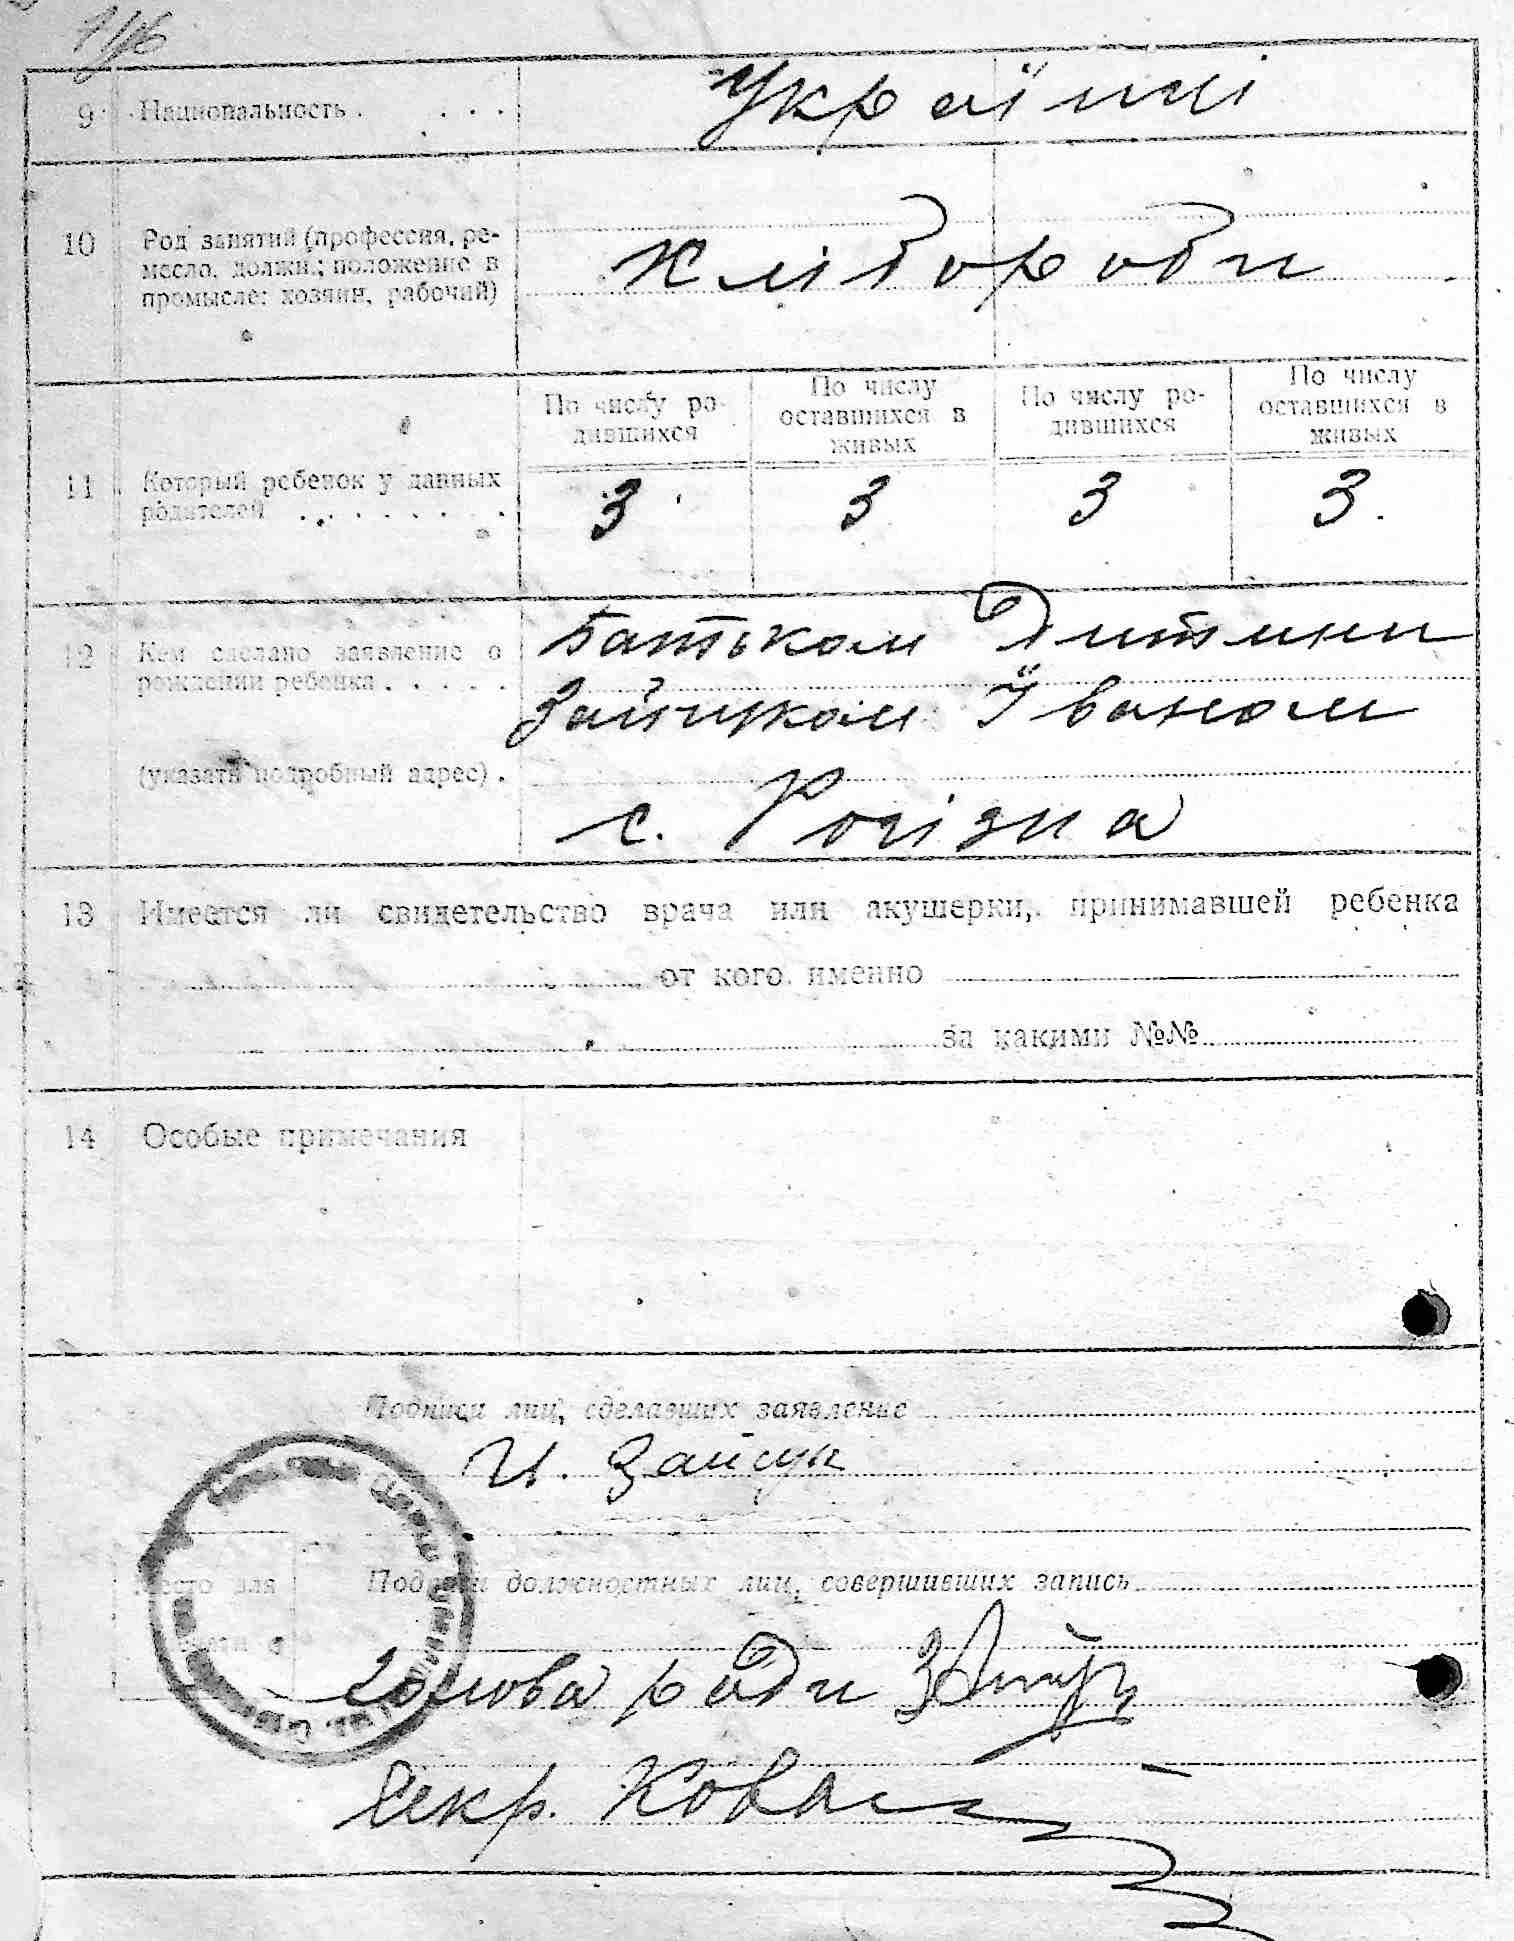 146
9 Национальность . . . . .
Українці
10 Род занятий (профессия, ре-
месло, должн.; положение в
промысле: хозяин, рабочий)
Хлібороби
По числу ро-
дившихся
По числу
оставшихся в
живых
По числу ро-
дившихся
По числу
оставшихся в
живых
11 Который ребенок у данных
родителей . . . . . . . .
3 3 3 3.
12 Кем сделано заявление о
рождении ребенка . . . . .
(указать подробный адрес) .
Батьком Дитини
Зайчуком Іваном
с. Рогізна
13 Имеется ли свидетельство врача или акушерки, принимавшей ребенка
от кого именно
за какими №№
14 Особые примечания
Подписи лиц, сделавших заявление
И. Зайчук
Место для
печати
Подписи должностных лиц, совершивших запись
Голова ради
Секр.